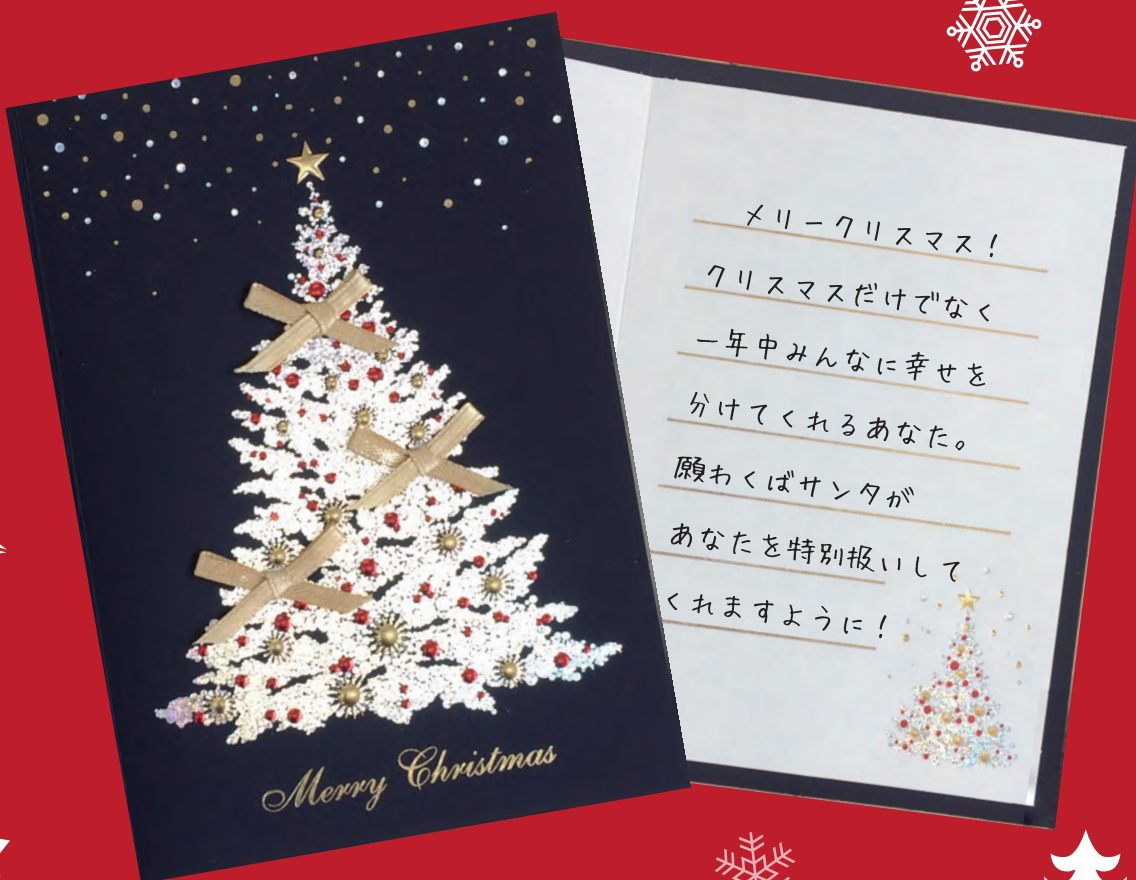 Merry Christmas
メリークリスマス！
クリスマスだけでなく
一年中みんなに幸せを
分けてくれるあなた。
願わくばサンタが
あなたを特別扱いして
くれますように！